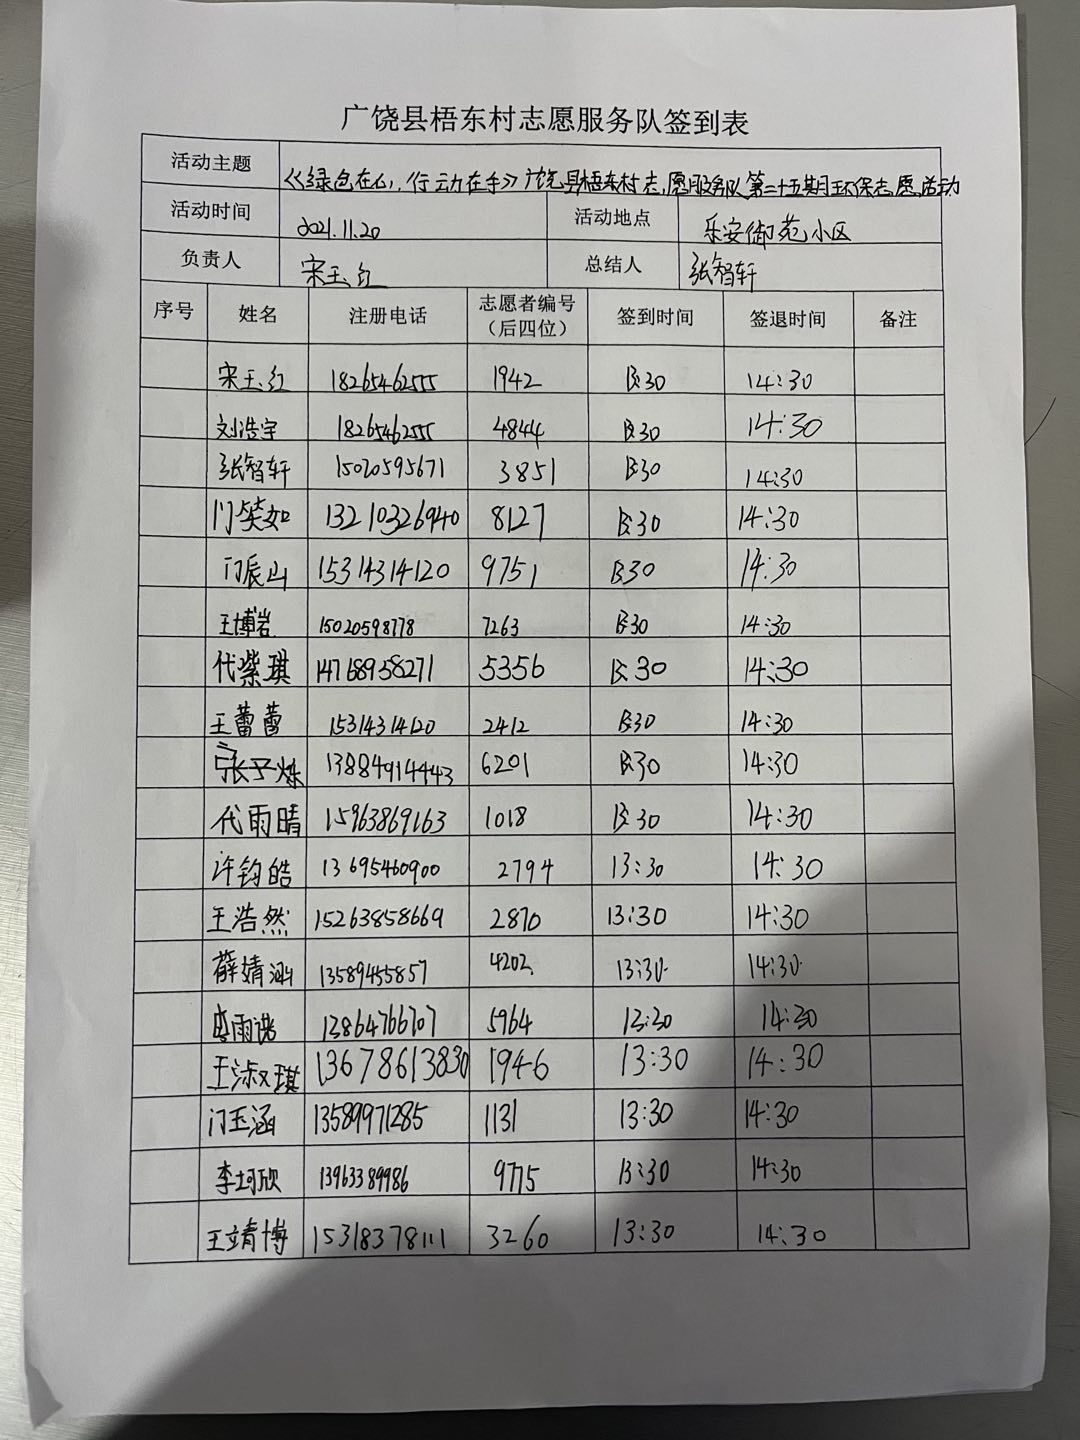 广饶县梧东村志愿服务队签到表
活动主题 《绿色在心,行动在手》广饶县梧东村志愿服务队第二十五期环保志愿活动
活动时间 2021.11.20 活动地点 乐安御苑小区
负责人 宋玉红 总结人 张智轩
序号 姓名 注册电话 志愿者编号 签到时间 签退时间 备注
(后四位)
宋玉红 18265462555 1942 13:30 14:30
刘浩宇 18265462555 4844 13:30 14:30
张智轩 15020595671 3851 13:30 14:30
门笑如 13210326940 8127 13:30 14:30
门辰山 15314314120 9751 13:30 14:30
王博岩 15020598778 7263 13:30 14:30
代紫琪 14768958271 5356 13:30 14:30
王蕾蕾 15314314120 2412 13:30 14:30
13884914443 6201 13:30 14:30
代雨晴 15963869163 1018 13:30 14:30
许钧皓 13695460900 2794 13:30 14:30
王浩然 15263858669 2870 13:30 14:30
薛婧涵 13589455857 4202 13:30 14:30
13864766707 5964 13:30 14:30
王淑琪 13678613830 1946 13:30 14:30
门玉涵 13589971285 1131 13:30 14:30
李珂欣 13963389986 9775 13:30 14:30
王靖博 15318378111 3260 13:30 14:30